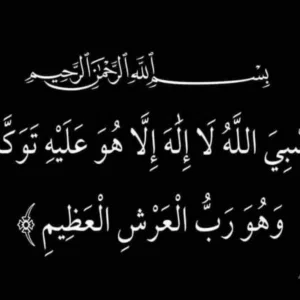 بِسْمِ اللَّهِ الرَّحْمَٰنِ الرَّحِيمِ
سْبِيَ اللَّهُ لَا إِلَٰهَ إِلَّا هُوَ عَلَيْهِ تَوَكَّ
وَهُوَ رَبُّ الْعَرْشِ الْعَظِيمِ ﴾